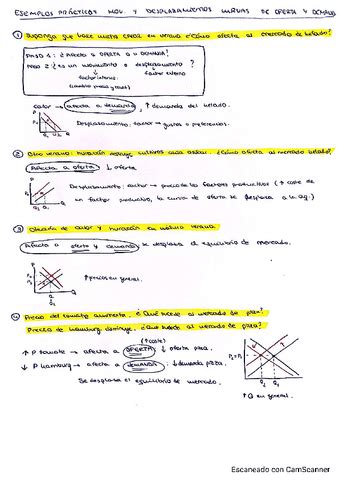 EJEMPLOS PRÁCTICOS MOV. Y DESPLAZAMIENTOS CURVAS DE OFERTA Y DEMANDA
① Suponga que hace mucho calor en verano ¿Cómo afecta al mercado de helado?
PASO 1: ¿Afecta a OFERTA o a DEMANDA?
PASO 2: ¿Es un movimiento o desplazamiento?
factor interno. factor externo
(cambio precio y cant)
calor → afecta a demanda, ↑ demanda del helado.
Desplazamiento. factor → gustos o preferencias.
② Otro verano: huracán destruye cultivos caña azúcar. ¿Cómo afecta al mercado helado?
Afecta a oferta ↓ oferta
Desplazamiento. factor → precio de los factores productivos (↑ coste de
un factor productivo, la curva de oferta se desplaza a la izq.)
③ Oleada de calor y huracán en mismo verano.
Afecta a oferta y demanda se desplaza el equilibrio de mercado.
↑ precios en general.
④ Precio del tomate aumenta. ¿Qué sucede al mercado de pizza?
Precio de hamburg disminuye. ¿Qué sucede al mercado de pizza?
(↑ coste)
↑ P tomate → afecta a OFERTA ↓ oferta pizza.
↓ P hamburg → afecta a DEMANDA ↓ demanda pizza.
Se desplaza el equilibrio de mercado.
↑ Q en general.
Escaneado con CamScanner